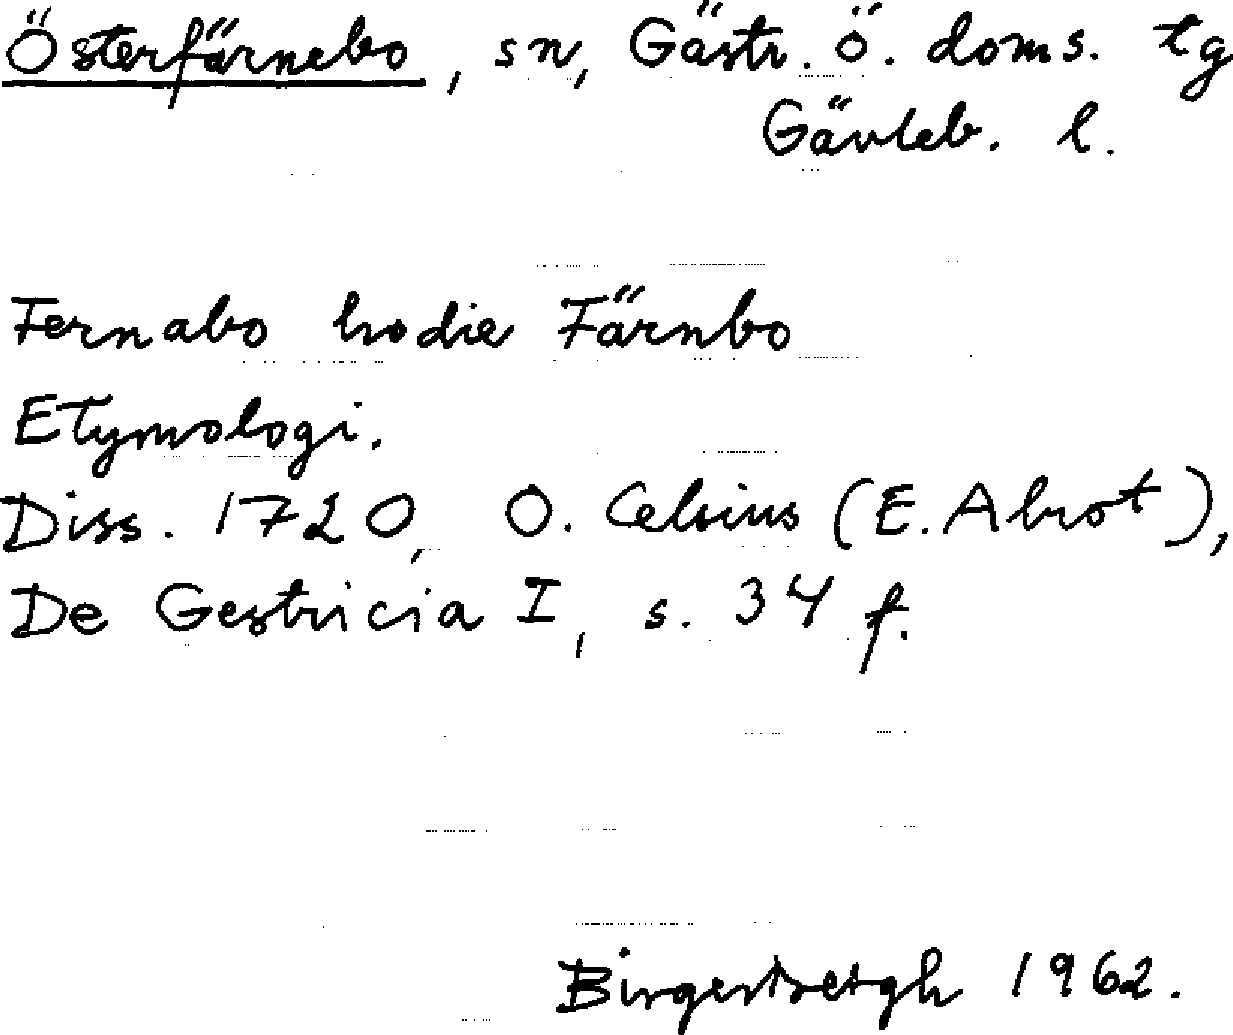 Österfärnebo, sn, Gästr. ö. doms. tg
Gävleb. l.
Fernabo hodie Färnbo
Etymologi.
Diss. 1720, O. Celsius (E. Abrot),
De Gestricia I, s. 34 f.
1962.